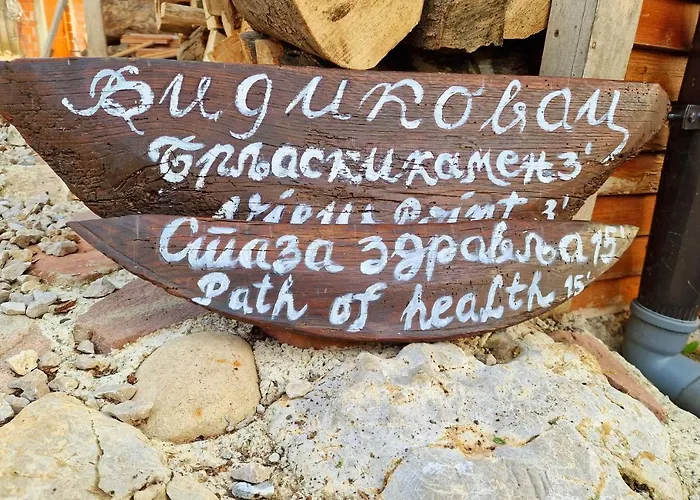 Видиковац
Брљаски камен 3'
Point 3'
Стаза здравља 15'
Path of health 15'